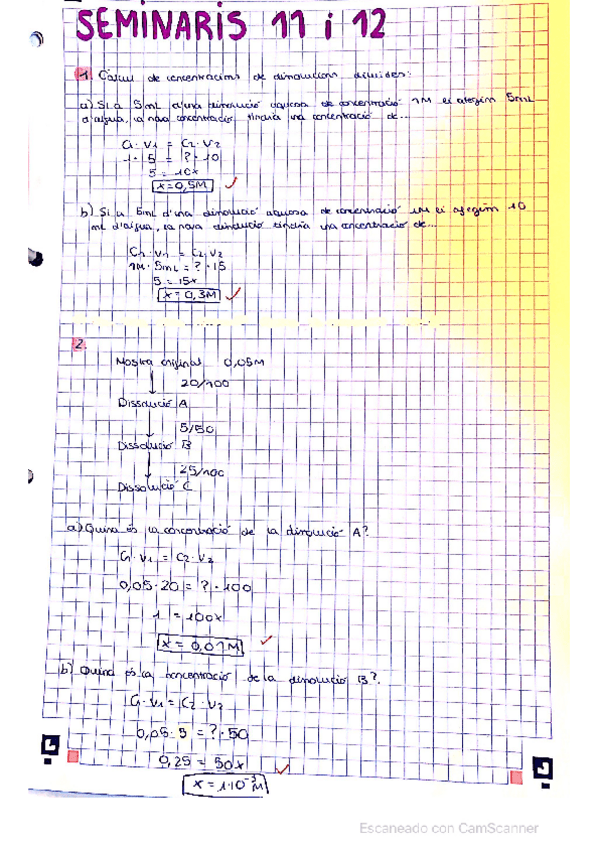 SEMINARIS 11 i 12
1. Càlcul de concentracions de dissolucions diluïdes:
a) Si a 5mL d'una dissolució aquosa de concentració 1M li afegim 5mL
d'aigua, la nova concentració tindria una concentració de...
C1·V1 = C2·V2
1·5 = ?·10
5 = 10x
x = 0,5M
b) Si a 5mL d'una dissolució aquosa de concentració 1M li afegim 10
mL d'aigua, la nova dissolució tindria una concentració de...
C1·V1 = C2·V2
1M·5mL = ?·15
5 = 15x
x = 0,3M
2.
Mostra original 0,05M
20/100
Dissolució A
5/50
Dissolució B
25/100
Dissolució C
a) Quina és la concentració de la dissolució A?
C1·V1 = C2·V2
0,05·20 = ?·100
1 = 100x
x = 0,01M
b) Quina és la concentració de la dissolució B?.
C1·V1 = C2·V2
0,05·5 = ?·50
0,25 = 50x
x = 1·10⁻³M
Escaneado con CamScanner